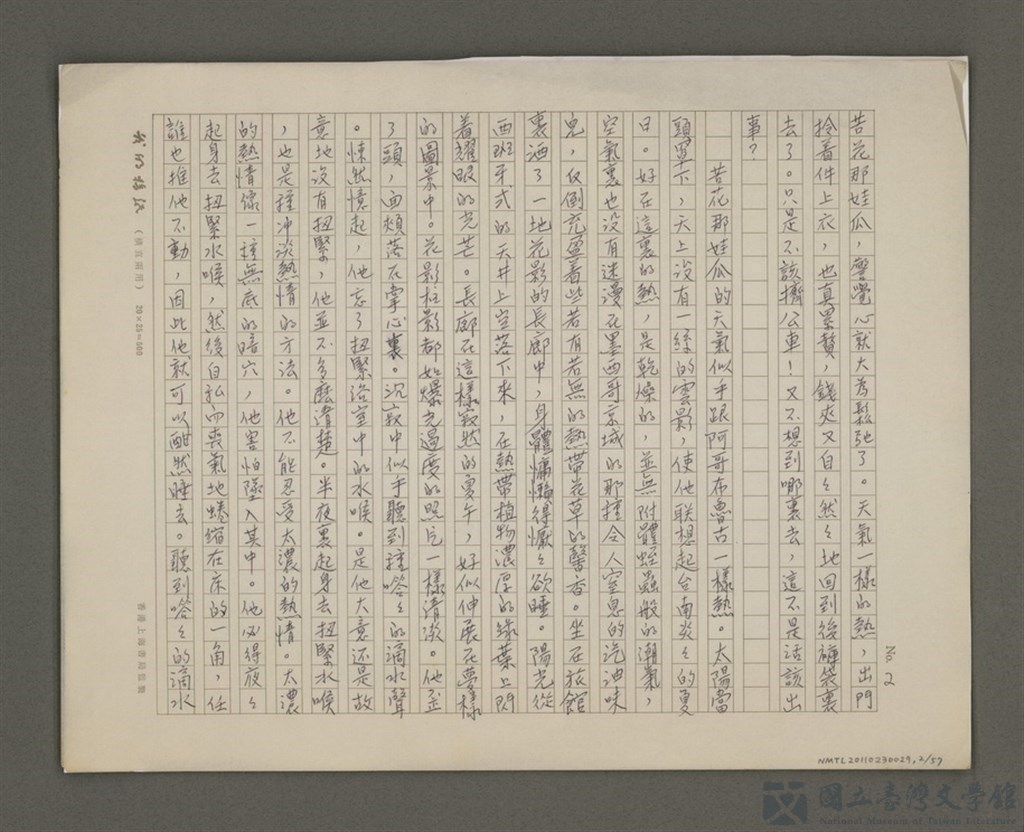 No 2
苦花那娃瓜，警覺心就大為鬆弛了。天氣一樣的熱，出門
拎着件上衣，也真累贅，錢夾又自々然々地回到後褲袋裏
去了。只是不該擠公車！又不想到哪裏去，這不是活該出
事？
苦花那娃瓜的天氣似乎跟阿哥布魯古一樣熱。太陽當
頭罩下，天上沒有一絲的雲影，使他聯想起台南炎々的夏
日。好在這裏的熱，是乾燥的，並無附體蛭蟲般的潮氣，
空氣裏也沒有迷漫在墨西哥京城的那種令人窒息的汽油味
兒，反倒充盈着些若有若無的熱帶花草的馨香。坐在旅館
裏洒了一地花影的長廊中，身體慵懶得懨々欲睡。陽光從
西班牙式的天井上空落下來，在熱帶植物濃厚的綠葉上閃
着耀眼的光芒。長廊在這樣寂然的夏午，好似伸展在夢樣
的圖景中。花影柱影都如爆光過度的照片一樣清淡。他歪
了頭，面頰落在掌心裏。沉寂中似乎聽到種嗒々的滴水聲
。悚然憶起，他忘了扭緊浴室中的水喉。是他大意還是故
意地沒有扭緊，他並不多麼清楚。半夜裏起身去扭緊水喉
，也是種冲淡熱情的方法。他不能忍受太濃的熱情。太濃
的熱情像一種無底的暗穴，他害怕墜入其中。他必得夜々
起身去扭緊水喉，然後自私而喪氣地蜷縮在床的一角，任
誰也推他不動，因此他就可以酣然睡去。聽到嗒々的滴水
20×25=500
NMTL20110230029, 2/57
國立臺灣文學館
National Museum of Taiwan Literature